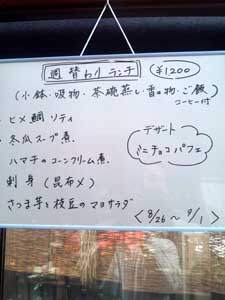 週替わりランチ ¥1200
(小鉢・吸物・茶碗蒸し・香の物・ご飯)
コーヒー付
・ヒメ鯛ソティ
・冬瓜スープ煮
ハマチのコーンクリーム煮
刺身(昆布〆)
さつま芋と枝豆のマヨサラダ
デザート
ミニチョコパフェ
<8/26~9/1>